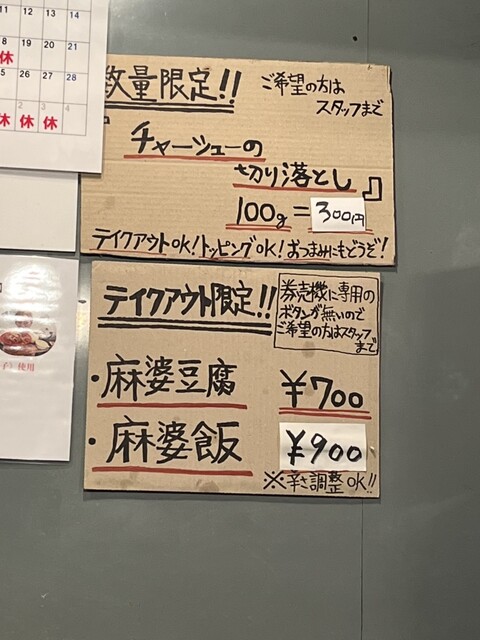 11 12 13 14
18 19 20 21
休
25 26 27 28
休 休 休
2 3 4
数量限定!!
ご希望の方は
スタッフまで
『チャーシューの
切り落とし』
100g = 300円
テイクアウトOK!トッピングOK!おつまみにもどうぞ!
テイクアウト限定!!
券売機に専用の
ボタンが無いので
ご希望の方はスタッフ
まで
・麻婆豆腐 ¥700
・麻婆飯 ¥900
※辛さ調整OK!!
使用